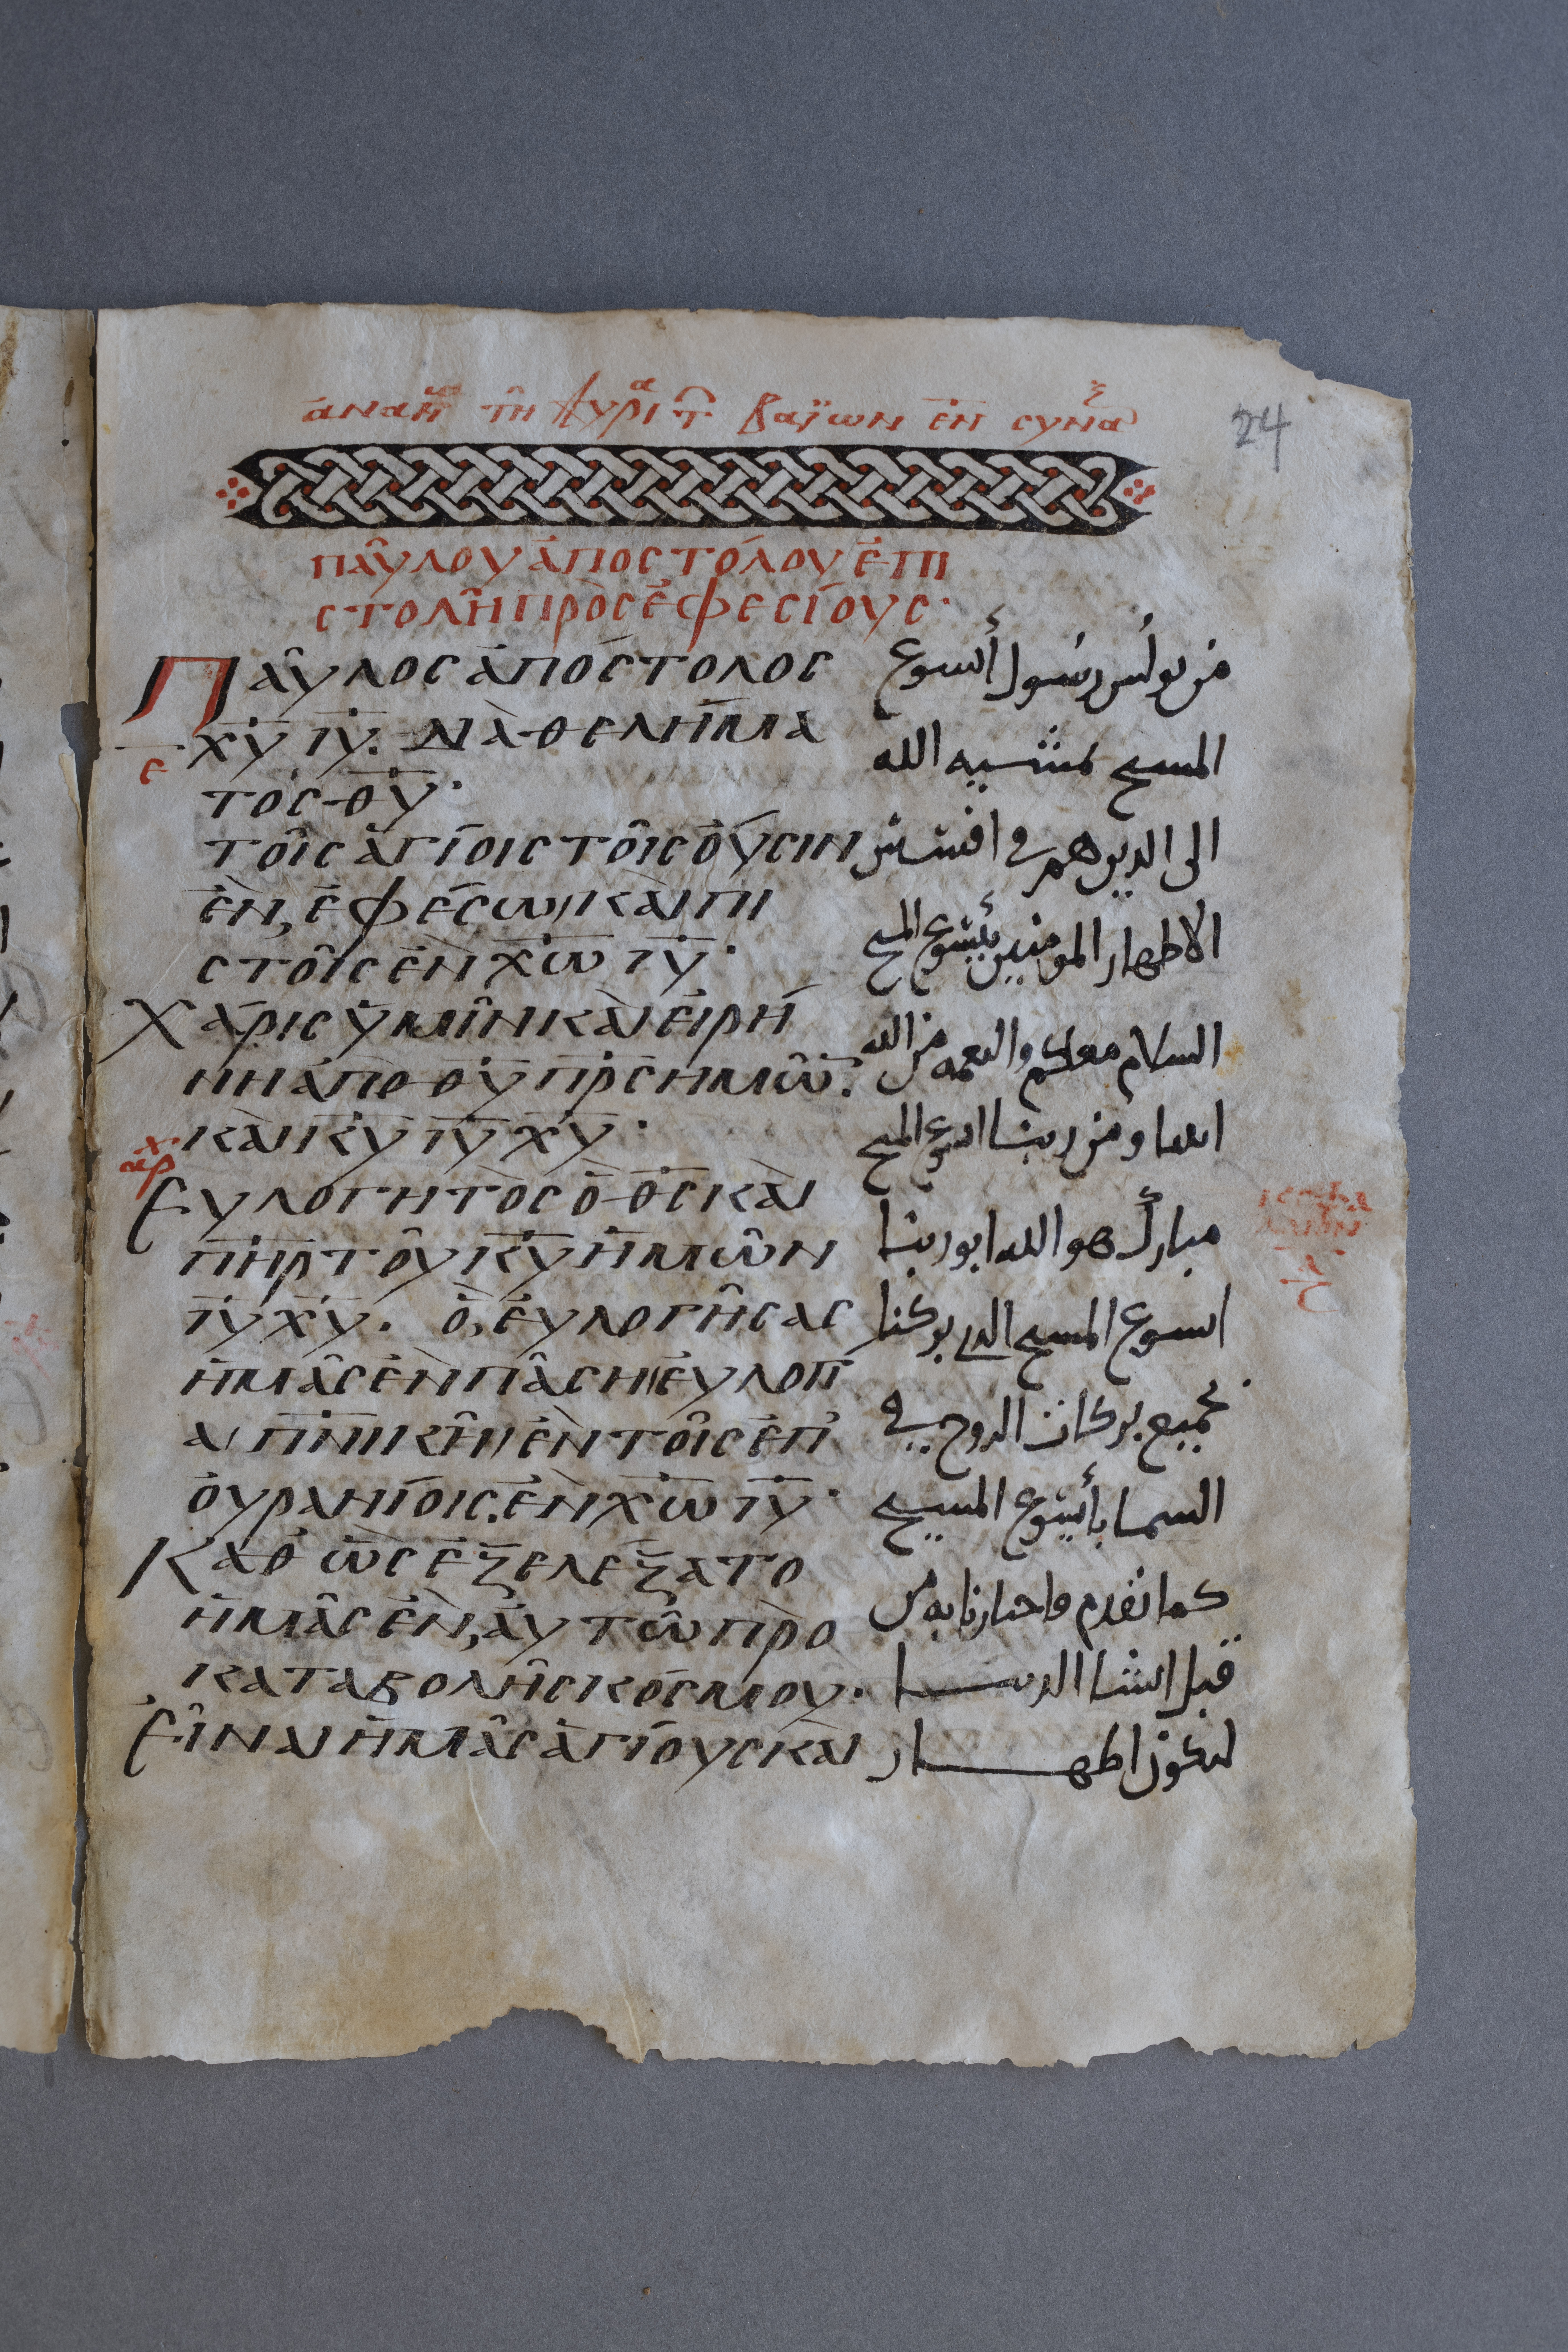 24
παύλου ἀποστόλου ἐπι
στολὴ πρὸς ἐφεσίους·
Παῦλος ἀπόστολος
χ̅υ̅ ι̅υ̅. διὰ θελήμα
τος θ̅υ̅·
τοῖς ἁγίοις τοῖς οὖσιν
ἐν ἐφέσωι καὶ πι
στοῖς ἐν χ̅ω̅ ι̅υ̅·
Χάρις ὑμῖν καὶ εἰρή
νη ἀπὸ θ̅υ̅ π̅ρ̅ς̅ ἡμῶ̅·
καὶ κ̅υ̅ ι̅υ̅ χ̅υ̅·
Εὐλογητὸς ὁ θ̅ς̅ καὶ
π̅η̅ρ̅ τοῦ κ̅υ̅ ἡμῶν
ι̅υ̅ χ̅υ̅. ὁ εὐλογήσας
ἡμᾶς ἐν πάσηι εὐλογί
αι π̅ν̅ικῆι ἐν τοῖς ἐπ
ουρανίοις. ἐν χ̅ω̅ ι̅υ̅·
Καθὼς ἐξελέξατο
ἡμᾶς ἐν αὐτῶ πρὸ
καταβολῆς κόσμου·
Εἶναι ἡμᾶς ἁγίους καὶ
من بولس رسول أيسوع
المسيح بمشييه الله
الى الدين هم في افسس
الاطهار المومنين بأيشوع المسيح
السلام معكم والنعمه من الله
ابينا ومن ربنا ايسوع المسيح
مبارك هو الله ابو ربنا
ايسوع المسيح الدي بركنا
بجميع بركات الروح في
السما بأيشوع المسيح
كما تقدم فاختارنا به من
قبل انشا الدنيا
لنكون اطهار